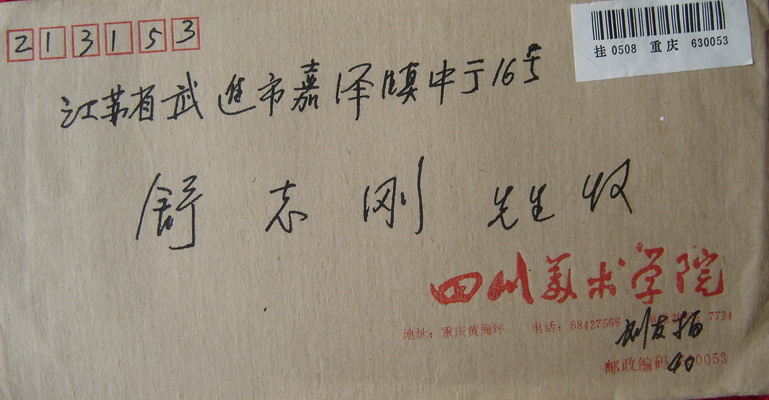 213153
挂 0508 重庆 630053
江苏省武进市嘉泽镇中于16号
舒志刚 先生收
四川美术学院
地址: 重庆黄桷坪 电话: 68427566 7724
邮政编码 0053
40